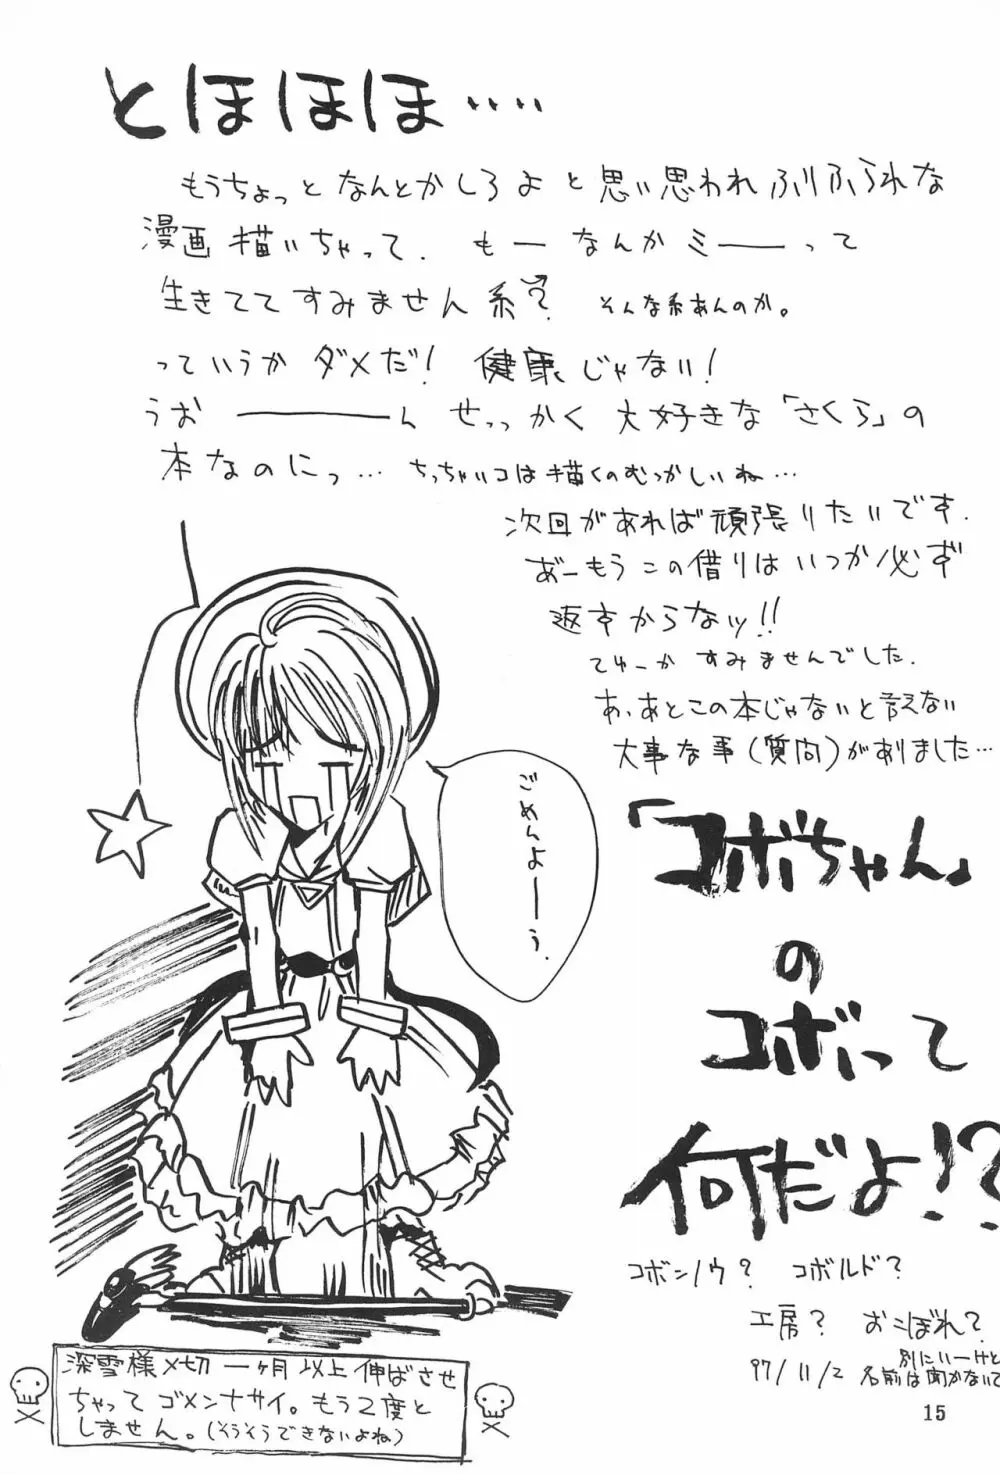 とほほほ‥‥
もうちょっとなんとかしろよと思い思われふりふられな
漫画描いちゃって. もーなんかミーーって
生きててすみません系? そんな系あんのか。
っていうかダメだ! 健康じゃない!
うおーーーん せっっかく大好きな「さくら」の
本なのにっ… ちっちゃいコは描くのむつかしいね…
次回があれば頑張りたいです.
あーもうこの借りはいつか必ず
返すからなッ!!
てゆーかすみませんでした.
あ、あとこの本じゃないと言えない
大事な事(質問)がありました…
ごめんよーう.
「コボちゃん」
の
コボって
何だよ!?
コボンノウ? コボルド?
工房? おこぼれ?
別にいーけど
97/11/2 名前は聞かないで
深雪様〆切一ヶ月以上伸ばさせ
ちゃってゴメンナサイ。もう2度と
しません。(そうそうできないよね)
15